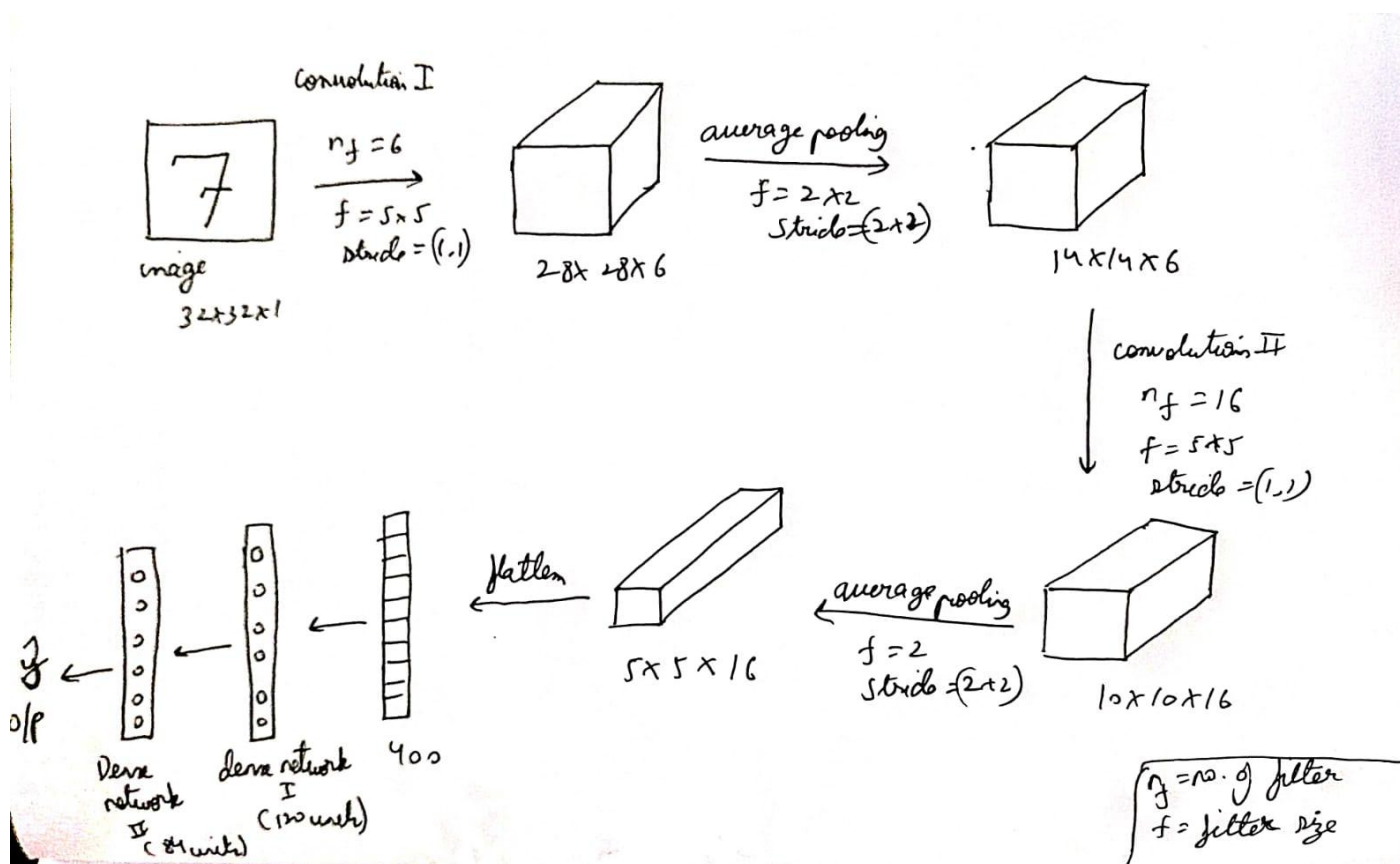 7
image
32x32x1
convolution I
nf = 6
f = 5x5
stride = (1,1)
28x28x6
average pooling
f = 2x2
stride=(2x2)
14x14x6
convolution II
nf = 16
f = 5x5
stride = (1,1)
10x10x16
average pooling
f = 2
stride=(2x2)
5x5x16
flatten
400
dense network
I
(120 units)
Dense
network
II
(84 units)
ŷ
o/p
nf = no. of filter
f = filter size